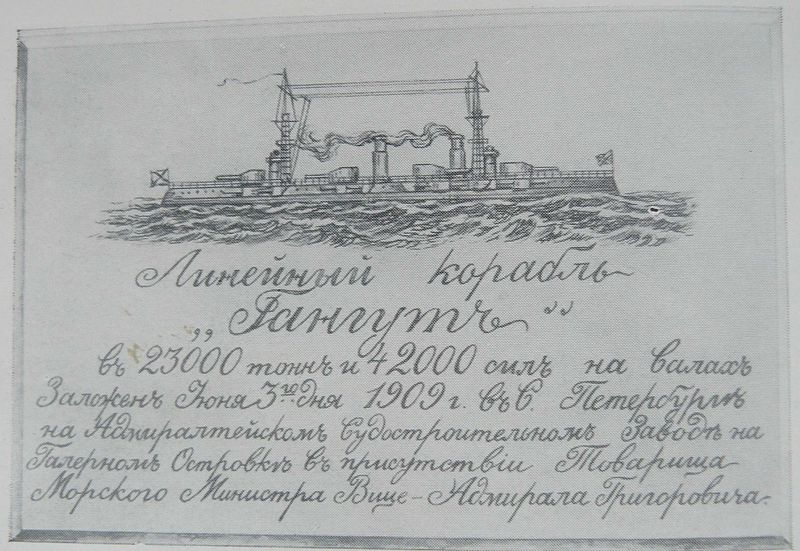 Линейный корабль
„Гангутъ“
въ 23000 тоннъ и 42000 силъ на валахъ
Заложенъ Іюня 3го дня 1909 г. въ С. Петербургѣ
на Адмиралтейскомъ Судостроительномъ Заводѣ на
Галерномъ Островкѣ въ присутствіи Товарища
Морского Министра Вице-Адмирала Григоровича.